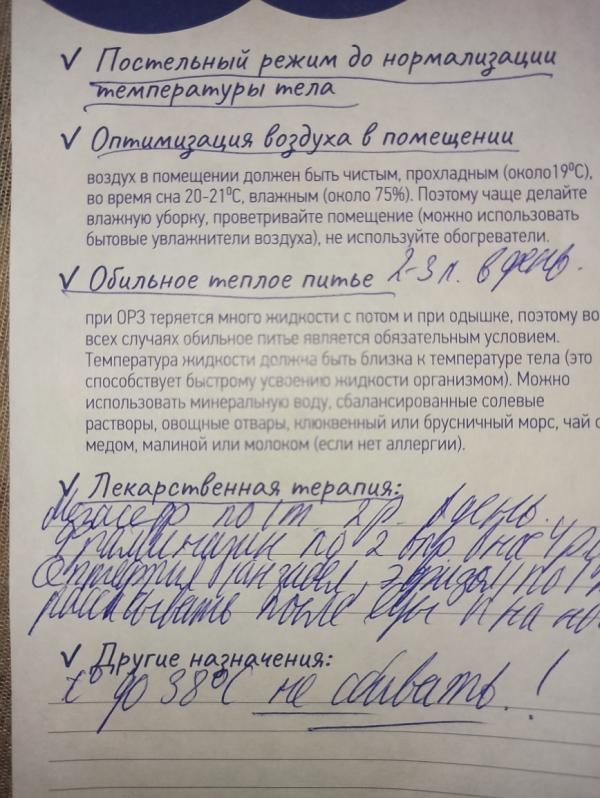 Постельный режим до нормализации
температуры тела
Оптимизация воздуха в помещении
воздух в помещении должен быть чистым, прохладным (около19⁰С),
во время сна 20-21⁰С, влажным (около 75%). Поэтому чаще делайте
влажную уборку, проветривайте помещение (можно использовать
бытовые увлажнители воздуха), не используйте обогреватели.
Обильное теплое питье 2-3 л. в день.
при ОРЗ теряется много жидкости с потом и при одышке, поэтому во
всех случаях обильное питье является обязательным условием.
Температура жидкости должна быть близка к температуре тела (это
способствует быстрому усвоению жидкости организмом). Можно
использовать минеральную воду, сбалансированные солевые
растворы, овощные отвары, клюквенный или брусничный морс, чай с
медом, малиной или молоком (если нет аллергии).
Лекарственная терапия:
по 1т 2р. в день.
по 2 впр в нос 4р
по 1т
рассасывать после еды и на но
Другие назначения:
t⁰ до 38⁰С не сбивать!